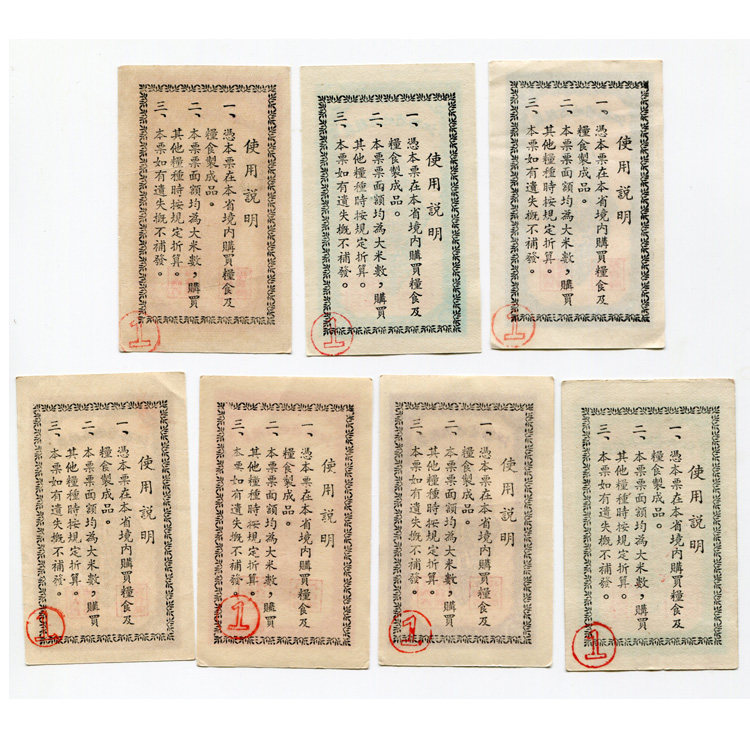 使用説明
一、憑本票在本省境内購買糧食及
糧食製成品。
二、本票票面額均為大米數，購買
其他糧種時按規定折算。
三、本票如有遺失概不補發。
1
使用説明
一、憑本票在本省境内購買糧食及
糧食製成品。
二、本票票面額均為大米數，購買
其他糧種時按規定折算。
三、本票如有遺失概不補發。
1
使用説明
一、憑本票在本省境内購買糧食及
糧食製成品。
二、本票票面額均為大米數，購買
其他糧種時按規定折算。
三、本票如有遺失概不補發。
1
使用説明
一、憑本票在本省境内購買糧食及
糧食製成品。
二、本票票面額均為大米數，購買
其他糧種時按規定折算。
三、本票如有遺失概不補發。
1
使用説明
一、憑本票在本省境内購買糧食及
糧食製成品。
二、本票票面額均為大米數，購買
其他糧種時按規定折算。
三、本票如有遺失概不補發。
1
使用説明
一、憑本票在本省境内購買糧食及
糧食製成品。
二、本票票面額均為大米數，購買
其他糧種時按規定折算。
三、本票如有遺失概不補發。
1
使用説明
一、憑本票在本省境内購買糧食及
糧食製成品。
二、本票票面額均為大米數，購買
其他糧種時按規定折算。
三、本票如有遺失概不補發。
1